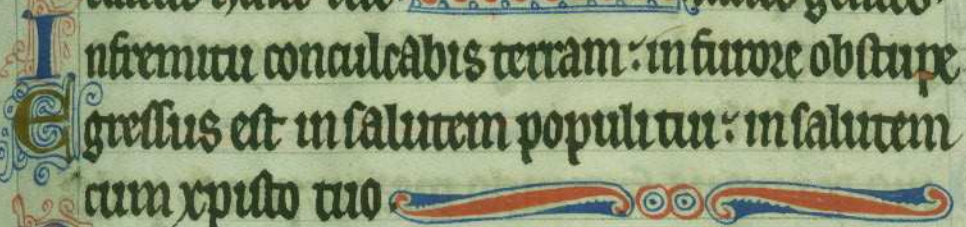 In fremitu conculcabis terram: in furore obstupe
Egressus est in salutem populi tui: in salutem
cum xpisto tuo